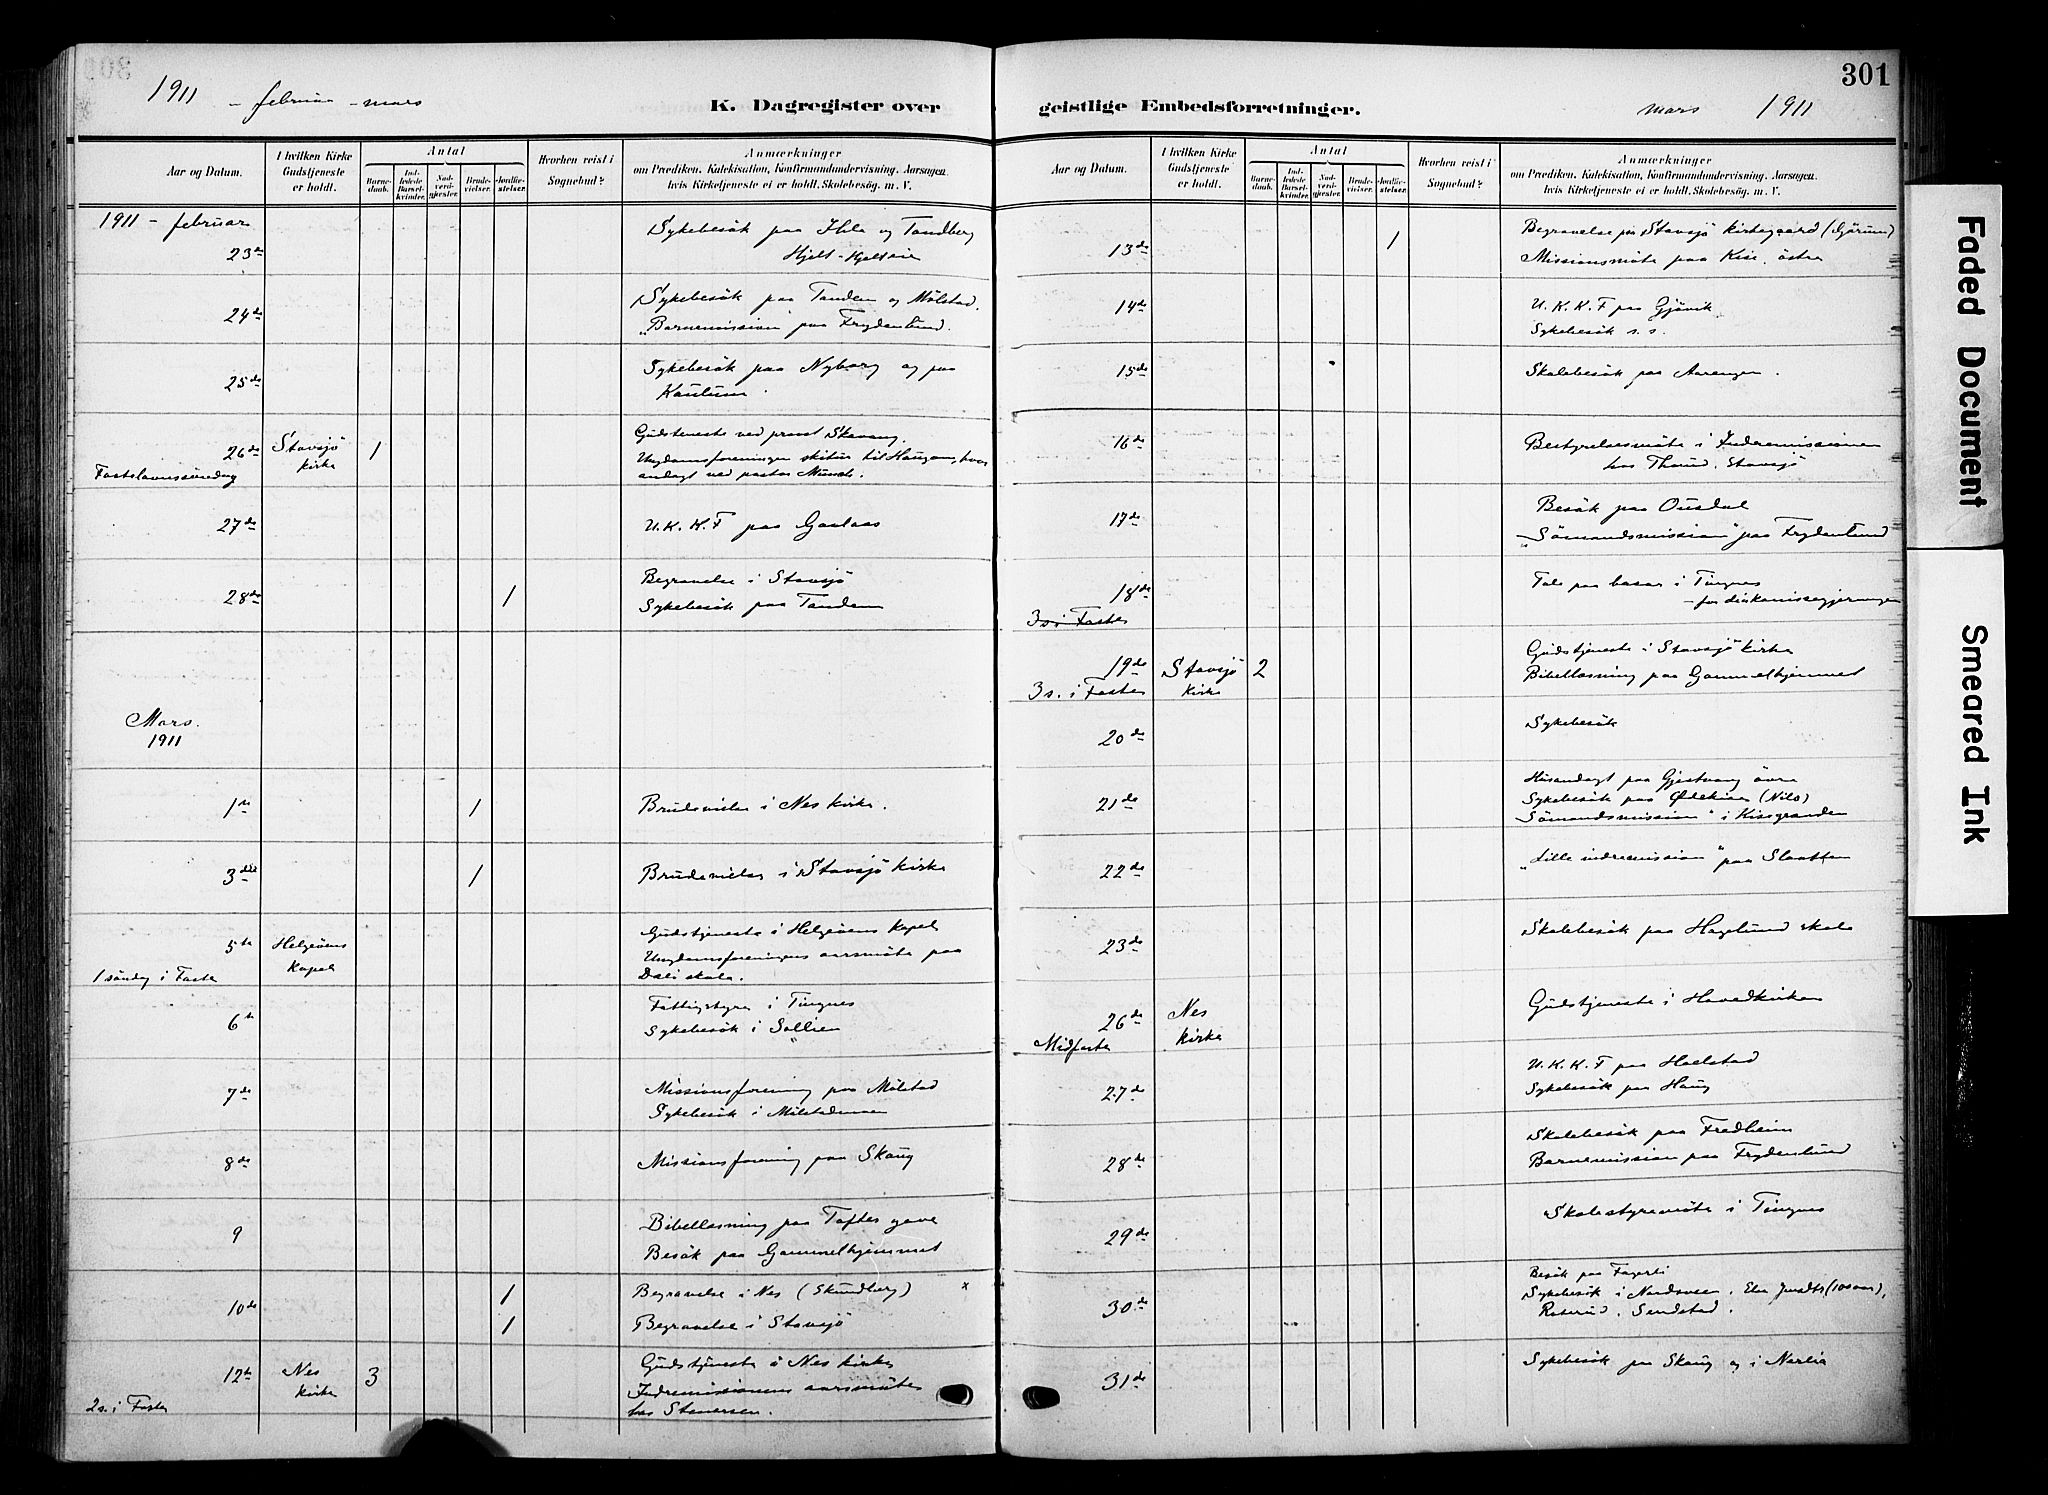 1911 – februar – mars
K. Dagregister over
Aar og Datum.
I hvilken Kirke Gudstjeneste er holdt.
Antal
Barnedaab.
Indledede Barselkvinder.
Nadverdgjæster.
Brudevielser.
Jordfæstelser.
Hvorhen reist i Sognebud?
Anmærkninger
om Prædiken, Katekisation, Konfirmandundervisning, Aarsagen,
hvis Kirketjeneste ei er holdt, Skolebesøg, m. V.
1911 – februar
23de
Sykebesök paa Hila og Tandberg
Hjelt-Hjelteie
24de
Sykebesök paa Tanden og Mølstad.
"Barnemission" paa Frydenlund.
25de
Sykebesök paa Nyborg og paa
26de Stavsjö kirke 1
Fastelavnssöndag
Gudsteneste ved provst Skavang.
Ungdomsforeningen skitur til Haugom, hvor
andagt ved pastor Munch.
27de
U. K. K. F paa Gaalaas
28de 1
Begravelse i Stavsjö
Sykebesök paa Tanden
Mars.
1911
1ste 1
Brudevielse i Nes kirke.
3die 1
Brudevielse i Stavsjö kirke
5te Helgöens Kapel
1 söndag i Faste
Gudstjeneste i Helgöens Kapel
Ungdomsforeningens aarsmöte paa
Dæli skole.
6te
Fattigstyre i Tingnes
Sykebesök i Sollien
7de
Missionsforening paa Mölstad
Sykebesök i Mölstad
8de
Missionsforening paa Skaug
9
Bibellæsning paa Toftes gave
Besök paa Gammelhjemmet
10de 1
Begravelse i Nes (Skundberg) x
1
Begravelse i Stavsjö
12te Nes kirke 3
2 s. i Faste
Gudstjeneste i Nes kirke
Indremissionens aarsmöte
hos
301
geistlige Embedsforretninger.
mars 1911
Aar og Datum.
I hvilken Kirke Gudstjeneste er holdt.
Antal
Barnedaab.
Indledede Barselkvinder.
Nadverdgjæster.
Brudevielser.
Jordfæstelser.
Hvorhen reist i Sognebud?
Anmærkninger
om Prædiken, Katekisation, Konfirmandundervisning, Aarsagen,
hvis Kirketjeneste ei er holdt, Skolebesøg, m. V.
13de 1
Begravelse paa Stavsjö kirkegaard (Gjörum)
Missionsmöte paa Kise, östre
14de
U. K. K. F paa Gjövik
Sykebesök s. s.
15de
Skolebesök paa Aavangen.
16de
Bestyrelsesmöte i Indremissionen
hos Thorud, Stavsjö
17de
Besök paa Ousdal
"Sömandsmission" paa Frydenlund
18de
3 s i Faste
Tale paa basar i Tingnes
– for diakonissegjerningen
19de Stavsjö Kirke 2
3 s. i Faste
Gudstjeneste i Stavsjö kirke
Bibellæsning paa Gammelhjemmet
20de
Sykebesök
21de
Husandagt paa Gjestvang övre
Sykebesök paa Ødekinn (Nils)
Sömandsmission" i Kisegranden
22de
"Lille indremission" paa Slaatten
23de
Skolebesök paa Hagelund skole
26de Nes kirke
Midfaste
Gudstjeneste i Hovedkirken
27de
U. K. K. F paa Hoelstad
Sykebesök paa Haug
28de
Skolebesök paa Fredheim
Barnemission paa Frydenlund
29de
Skolestyremöte i Tingnes
30de
Besök paa Fagerli
Sykebesök i Nordsveen, (100 aar),
Roterud, Sendstad.
31de
Sykebesök paa Skaug og i Nerlia
Faded Document
Smeared Ink